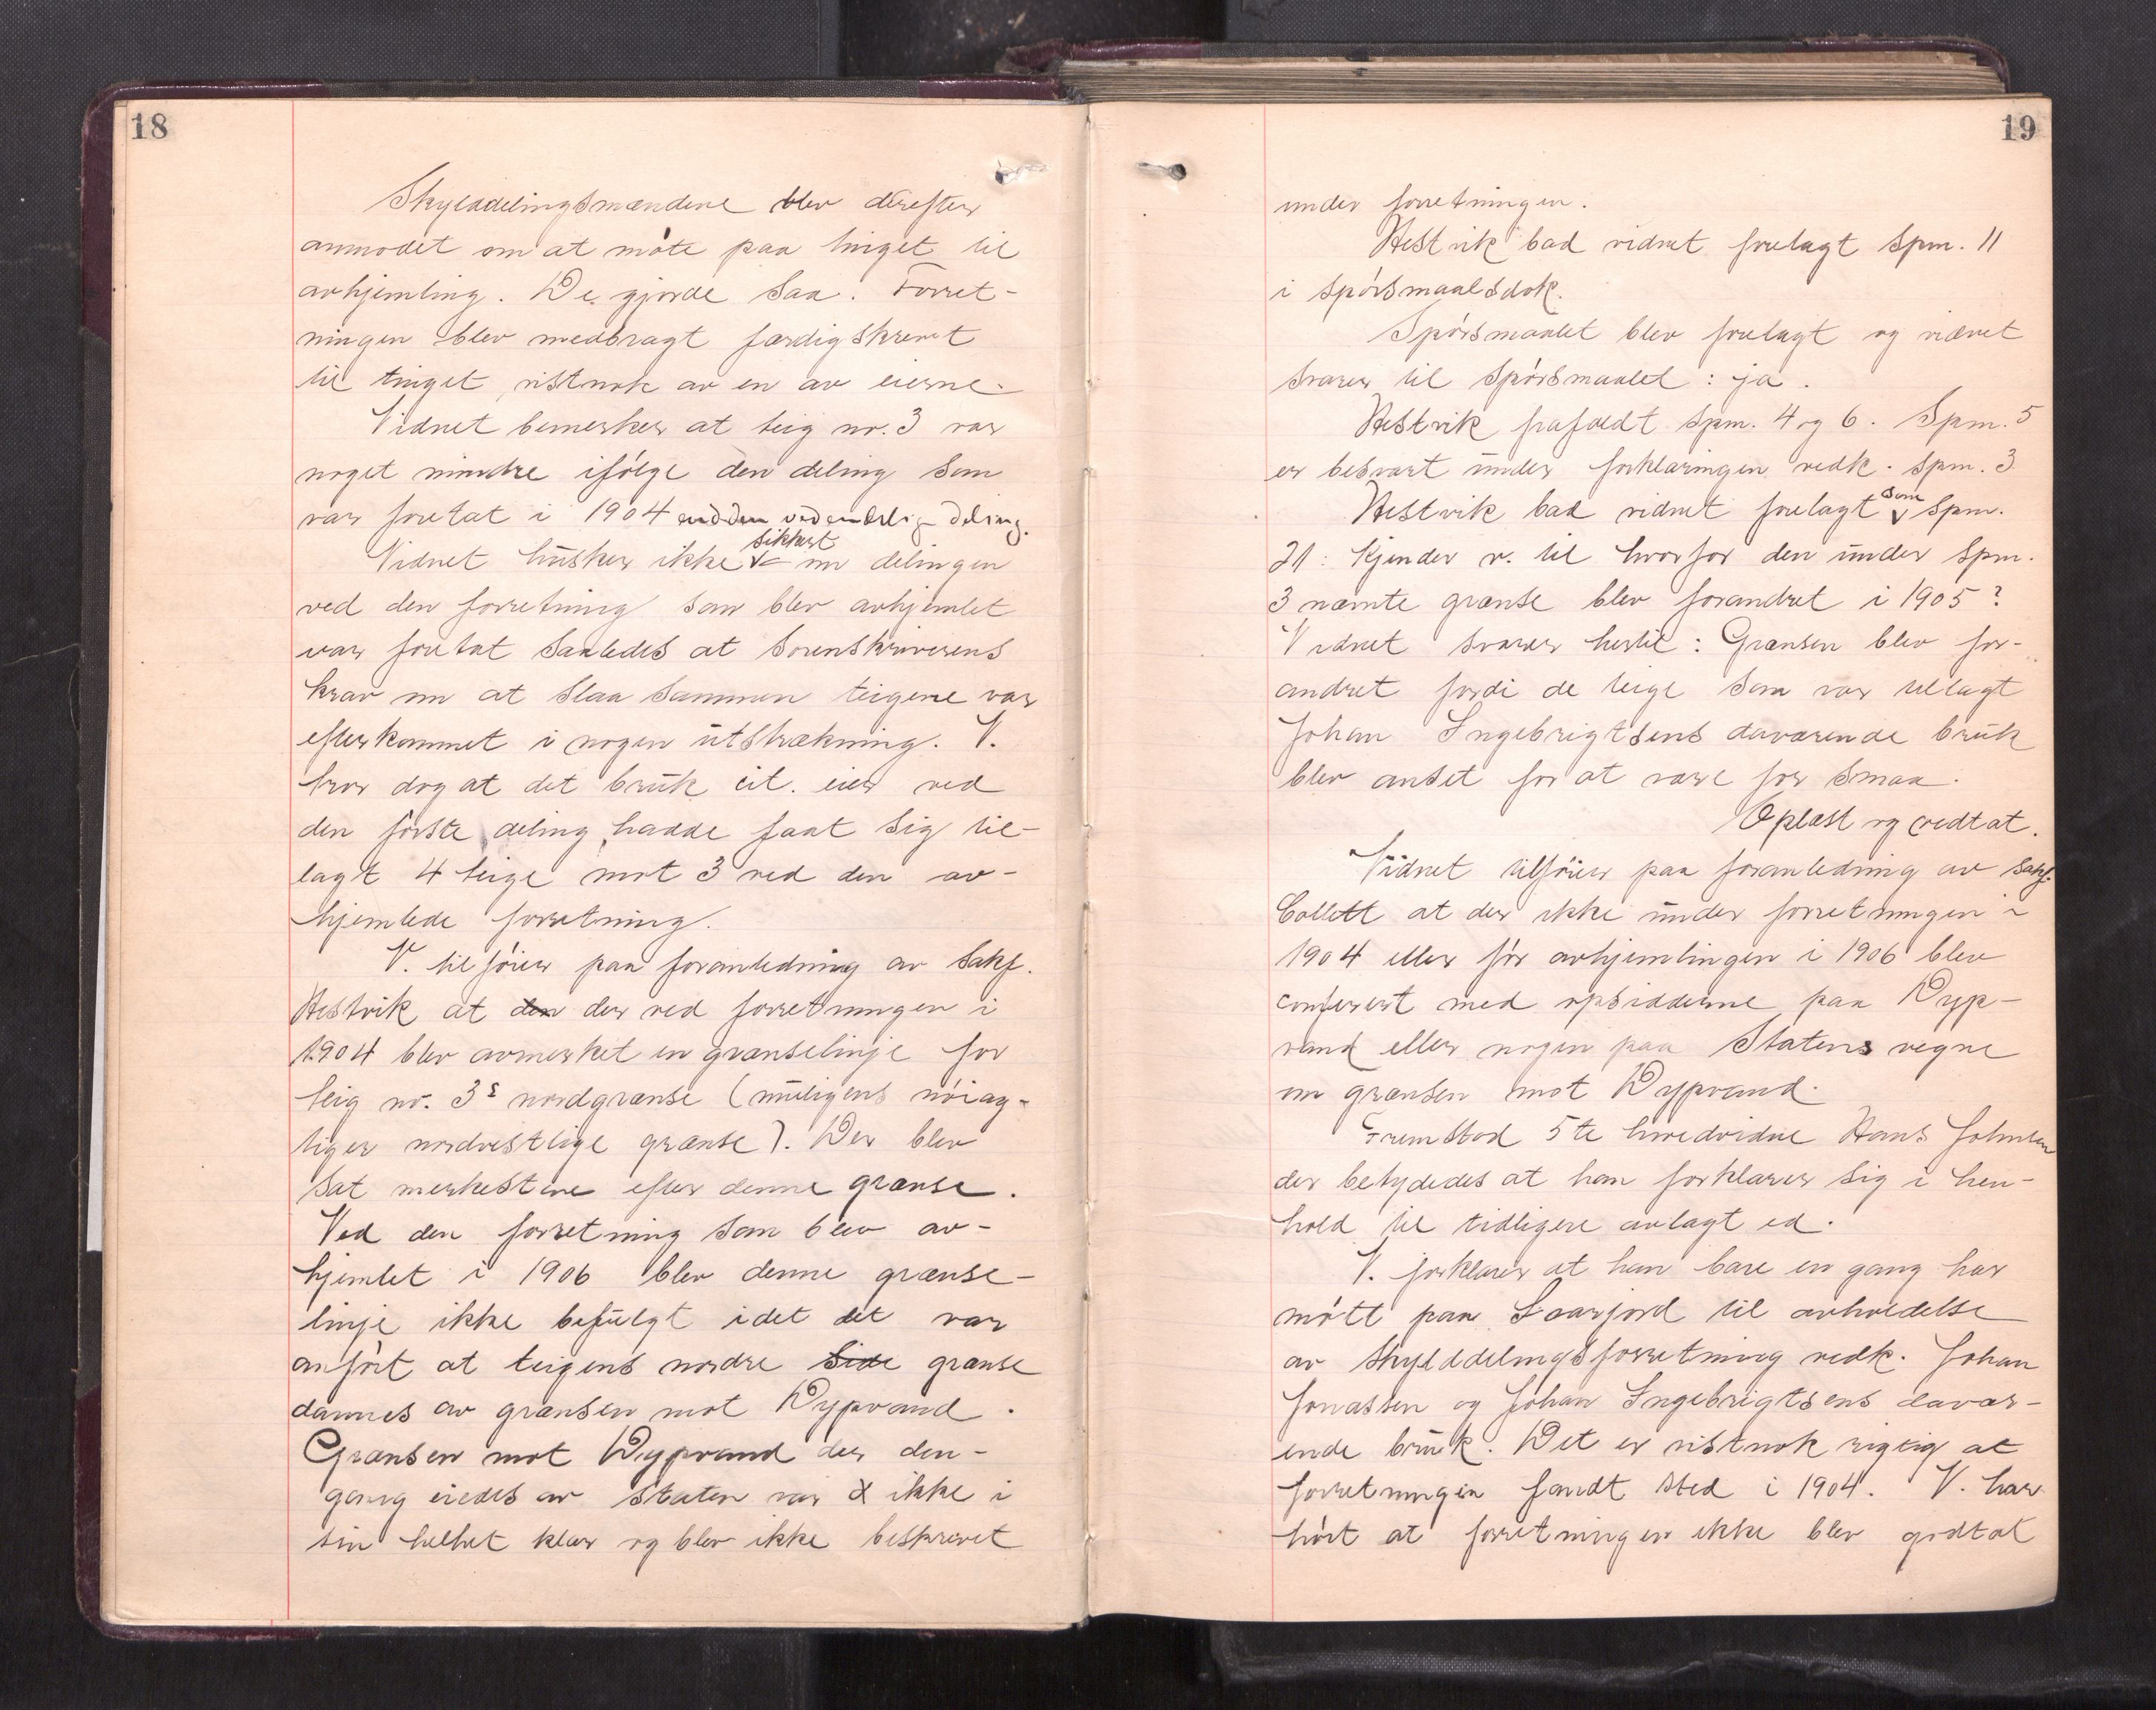 18
Skylddelingsmændene blev derefter
anmodet om at møte paa tinget til
avhjemling. De gjorde saa. Forret-
ningen blev medbragt færdigskrevet
til tinget, vistnok av en av eierne.
Vidnet bemerker at teig nr. 3 var
noget mindre ifølge den deling som
var foretat i 1904 end den endelige deling.
sikkert
Vidnet husker ikke om delingen
ved den forretning som blev avhjemlet
var foretat saaledes at sorenskriverens
krav om at slaa sammen teigene var
efterkommet i nogen utstrækning. V.
tror dog at det bruk cit. eier ved
den første deling hadde faat sig til-
lagt 4 teige mot 3 ved den av-
hjemlede forretning.
V. tilføier paa foranledning av sakf.
Hestvik at den der ved forretningen i
1904 blev avmerket en grænselinje for
teig nr. 3s nordgrænse (muligens nøiag-
tiger nordvestlige grænse). Der blev
sat merkestene efter denne grænse.
Ved den forretning som blev av-
hjemlet i 1906 blev denne grænse-
linje ikke befulgt idet det var
anført at teigens nordre side grænse
dannes av grænsen mot Dypvand.
Grænsen mot Dypvand der den-
gang eiedes av staten var ikke i
sin helhet klar og blev ikke beskrevet
19
under forretningen.
Hestvik bad vidnet forelagt spm. 11
i spørsmaalsdok.
Spørsmaalet blev forelagt og vidnet
svarer til spørsmaalet: ja.
Hestvik frafaldt spm. 4 og 6. Spm. 5
er besvart under forklaringen vedk. spm. 3
Hestvik bad vidnet forelagt som spm.
21: Kjender v. til hvorfor den under spm.
3 nævnte grænse blev forandret i 1905?
Vidnet svarer hertil: Grænsen blev for-
andret fordi de teige som var tillagt
Johan Ingebrigtsens daværende bruk
blev anset for at være for smaa.
Oplæst og vedtat.
Vidnet tilføier paa foranledning av sakf.
Collett at der ikke under forretningen i
1904 eller før avhjemlingen i 1906 blev
confereret med opsidderne paa Dyp-
vand eller nogen paa Statens vegne
om grænsen mot Dypvand.
Fremstod 5te hovedvidne Hans Johnsen
der betydedes at han forklarer sig i hen-
hold til tidligere avlagt ed.
V. forklarer at han bare en gang har
møtt paa Saarfjord til avholdelse
av skylddelingsforretning vedk. Johan
Jonassen og Johan Ingebrigtsens davær-
ende bruk. Det er vistnok rigtig at
forretningen fandt sted i 1904. V. har
hørt at forretningen ikke blev godtat